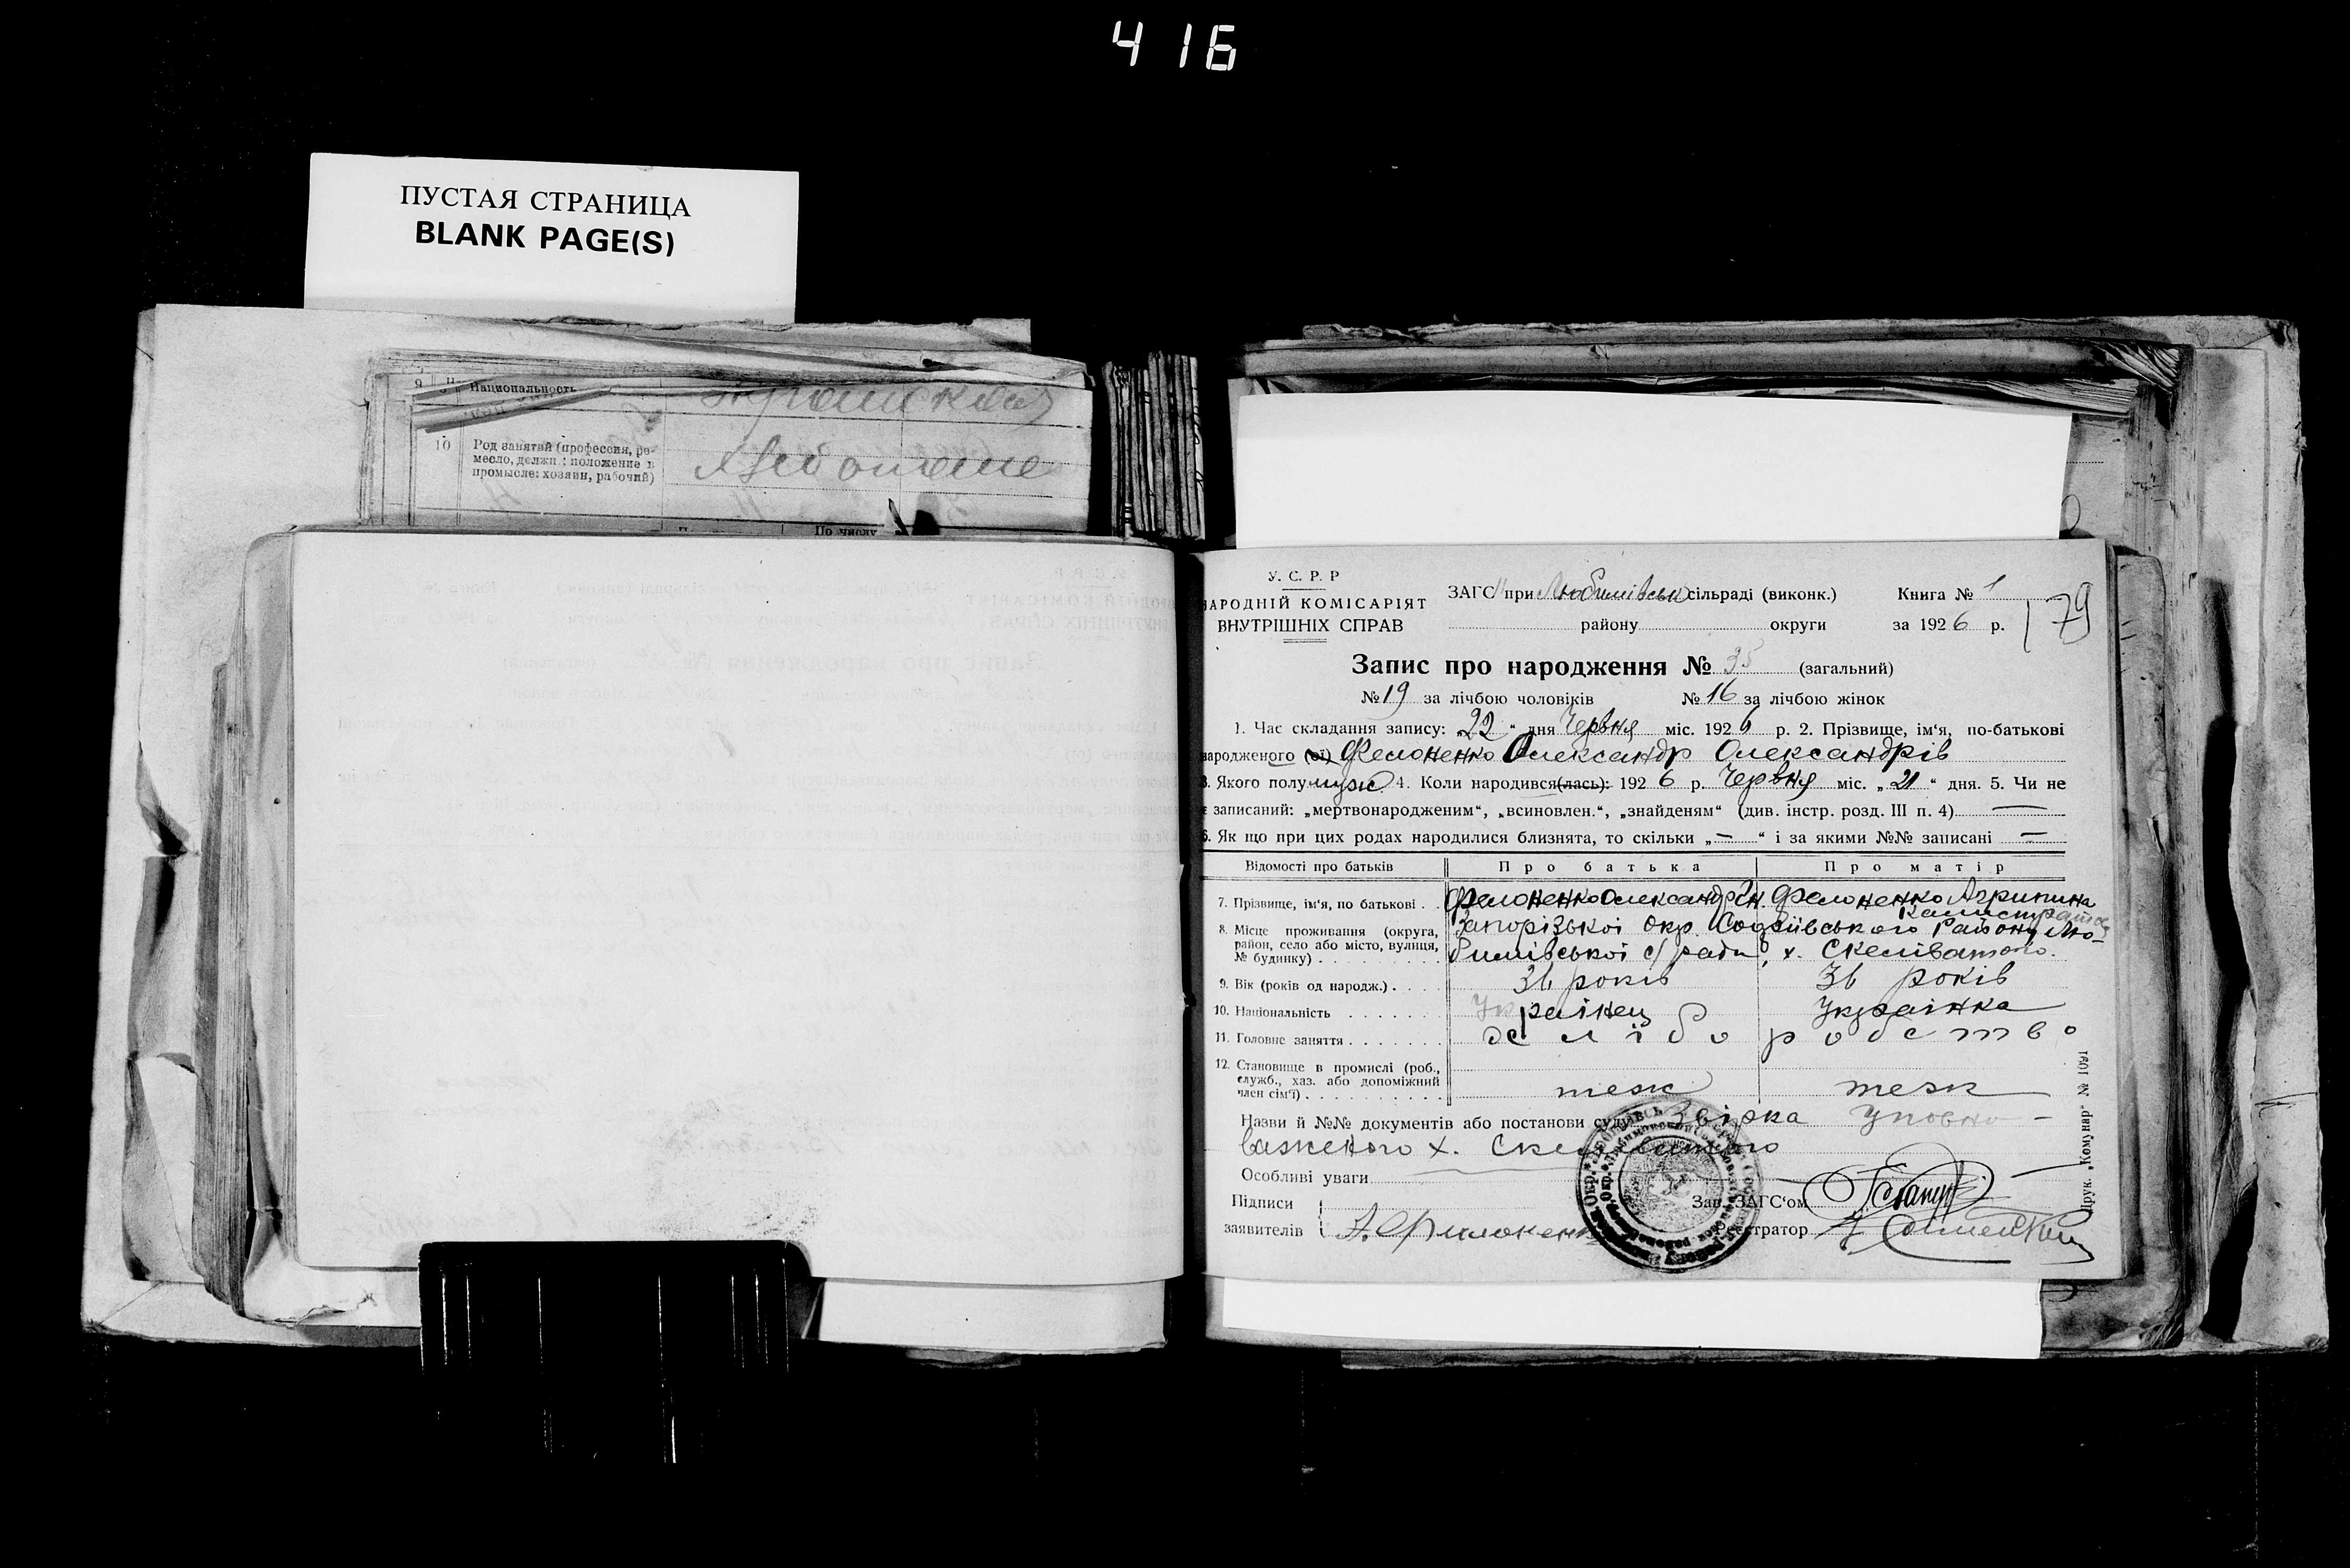 416
ПУСТАЯ СТРАНИЦА
BLANK PAGE(S)
9 Национальность
10 Род занятий (профессия, ре-
месло, должн.: положение в
промысле: хозяин, рабочий)
По числу
У. С. Р. Р
НАРОДНІЙ КОМІСАРІЯТ
ВНУТРІШНІХ СПРАВ
ЗАГС при Любимівськ сільраді (виконк.) Книга № 1
району округи за 1926 р.
179
Запис про народження № 35 (загальний)
№ 19 за лічбою чоловіків № 16 за лічбою жінок
1. Час складання запису: „22“ дня Червня міс. 1926 р. 2. Прізвище, ім‘я, по-батькові
народженого (ої) Филоненко Олександр Олександрів
3. Якого полу муж. 4. Коли народився(лась): 1926 р. Червня міс. „21“ дня. 5. Чи не
є записаний: „мертвонародженим“, „всиновлен.“, „знайденям“ (див. інстр. розд. III п. 4) —
6. Як що при цих родах народилися близнята, то скільки „—“ і за якими №№ записані —
Відомості про батьків Про батька Про матір
7. Прізвище, ім‘я, по батькові . . Филоненко Олександр Филоненко Агрипина
8. Місце проживання (округа, Запорізької Окр. Софіївського Району Лю-
район, село або місто, вулиця,
№ будинку) . . . . . . . . бимівської с/ ради, х. Скелеватого.
9. Вік (років од народж.) . . . . 36 років 36 років
10. Національність . . . . . . Українец Українка
11. Головне заняття . . . . . . . хлібо робство
12. Становище в промислі (роб.,
служб., хаз. або допоміжний
член сім‘ї) . . . . . . . . . . теж теж
Назви й №№ документів або постанови суду Звірка Уповно-
важеного х. Скелеватого
Особливі уваги
Підписи
заявителів А. Филоненко
Зав. ЗАГС‘ом
Реєстратор
Друк. „Комунар“ № 1041